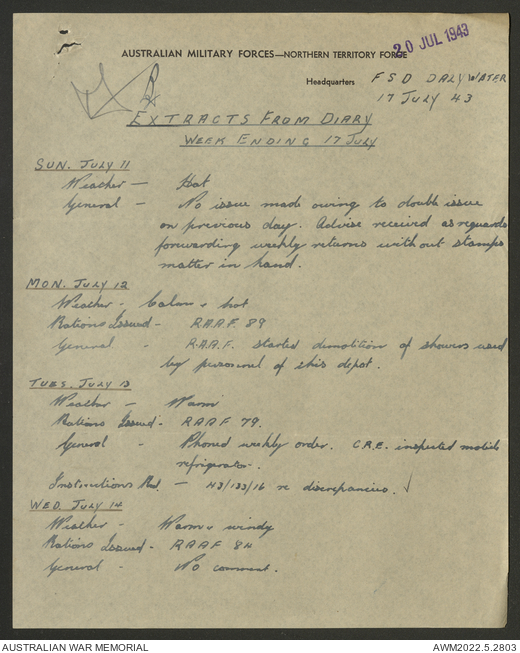 20 JUL 1943
AUSTRALIAN MILITARY FORCES—NORTHERN TERRITORY FORCE
Headquarters F S D DALY WATER
17 JULY 43
EXTRACTS FROM DIARY
WEEK ENDING 17 JULY
SUN. JULY 11
Weather - Hot
General - No issue made owing to double issue
on previous day. Advise received as regards
forwarding weekly returns without stamps
matter in hand.
MON. JULY 12
Weather - Calm & hot
Rations Issued - R.A.A.F. 89
General - R.A.A.F. started demolition of showers used
by personnel of this depot.
TUES. JULY 13
Weather - Warm
Rations Issued - RAAF 79.
General - Phoned weekly order. C.R.E. inspected mobile
refrigerator.
Instructions Rec. - 43/133/16 re discrepancies. ✓
WED. JULY 14
Weather - Warm & windy
Rations Issued - RAAF 84
General - No comment.
AUSTRALIAN WAR MEMORIAL
AWM2022.5.2803